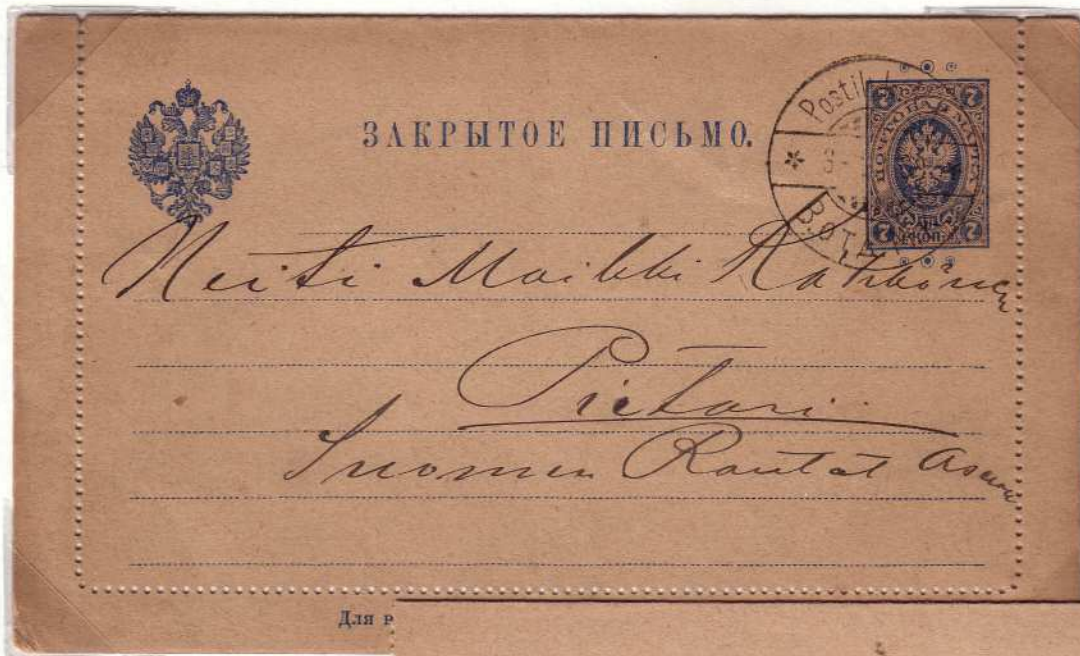 ЗАКРЫТОЕ ПИСЬМО.
Postil
7 7
ПОЧТОВАЯ МАРКА
7 7
Neiti Maikki
Pietari
Suomen Rautat Asema
Для